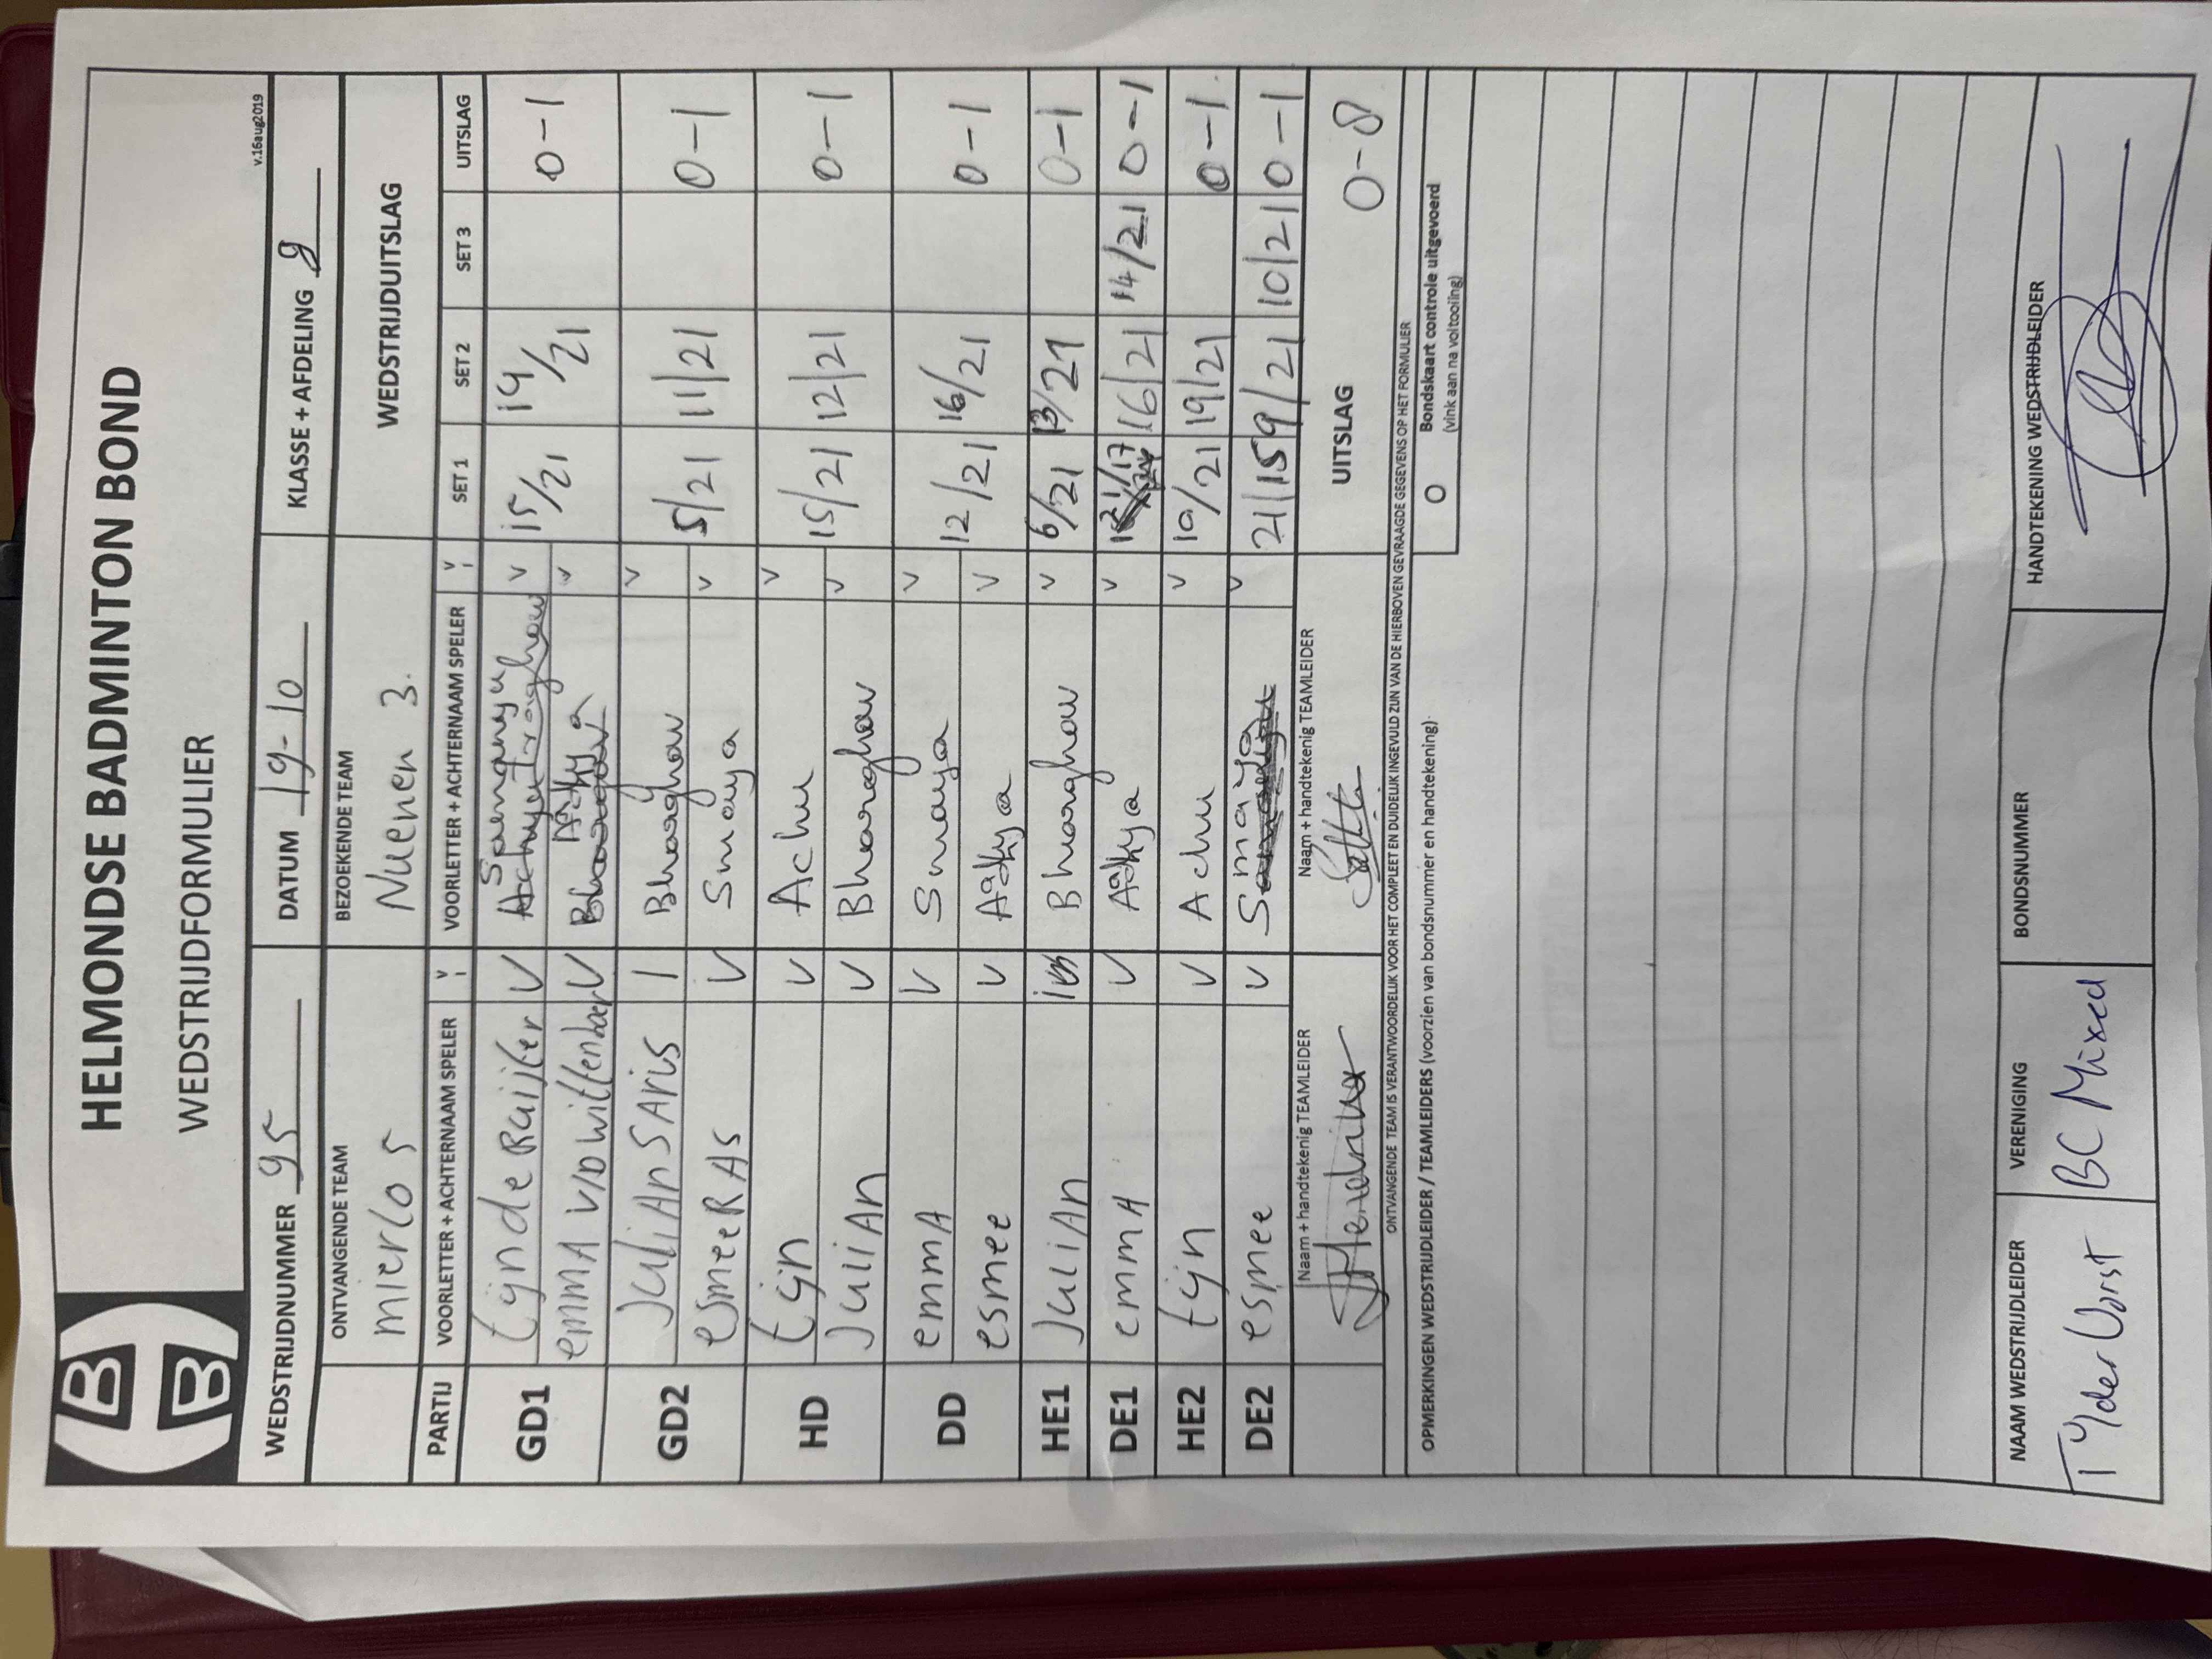 HELMONDSE BADMINTON BOND
WEDSTRIJDFORMULIER
v.16aug2019
WEDSTRIJDNUMMER 95 DATUM 19-10 KLASSE + AFDELING 8
ONTVANGENDE TEAM BEZOEKENDE TEAM WEDSTRIJDUITSLAG
mierlo 5 Nuenen 3.
PARTIJ VOORLETTER + ACHTERNAAM SPELER V VOORLETTER + ACHTERNAAM SPELER V SET 1 SET 2 SET 3 UITSLAG
GD1 tijn de Ruijter V v 15/21 19/21 0-1
emma v/d wittenboer V Aadya v
GD2 Julian SAris / Bharghav v 5/21 11/21 0-1
esmee RAS V Smaya v
HD tijn V Achu v 15/21 12/21 0-1
Julian V Bharaghav v
DD emmA V Smaya v 12/21 16/21 0-1
esmee V Aadya v
HE1 JuliAn Bharghav v 6/21 13/21 0-1
DE1 emmA V Aadya v 21/17 16/21 14/21 0-1
HE2 tijn V Achu v 10/21 19/21 0-1.
DE2 esmee V Smaya v 21/15 9/21 10/21 0-1
Naam + handtekenig TEAMLEIDER Naam + handtekenig TEAMLEIDER UITSLAG 0-8
ONTVANGENDE TEAM IS VERANTWOORDELIJK VOOR HET COMPLEET EN DUIDELIJK INGEVULD ZIJN VAN DE HIERBOVEN GEVRAAGDE GEGEVENS OP HET FORMULIER
OPMERKINGEN WEDSTRIJDLEIDER / TEAMLEIDERS (voorzien van bondsnummer en handtekening).
O Bondskaart controle uitgevoerd
(vink aan na voltooiing)
NAAM WEDSTRIJDLEIDER VERENIGING BONDSNUMMER HANDTEKENING WEDSTRIJDLEIDER
T v/der Vorst BC Mixed